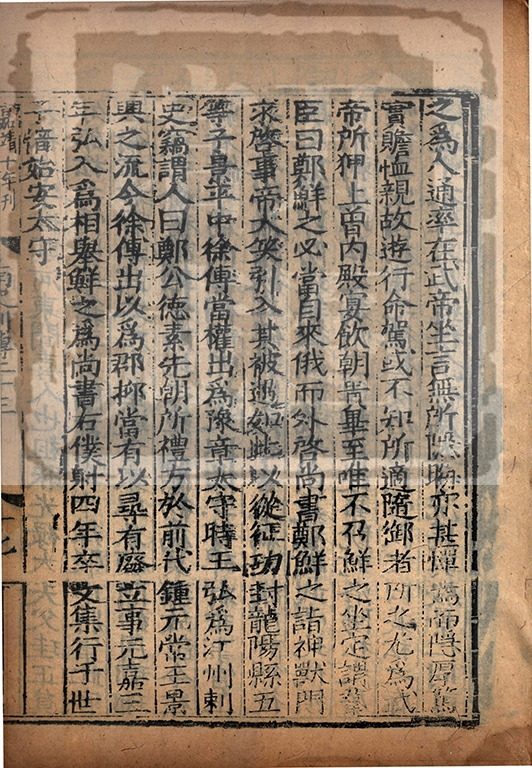 之爲人通率在武帝坐言無所隱晦亦甚憚焉而隱厚篤
實贍恤親故遊行命駕或不知所適隨御者所之尤爲武
帝所狎上曾内殿宴飲朝貴畢至唯不召鮮之坐定謂羣
臣曰鄭鮮之必當自來俄而外啓尚書鄭鮮之詣神獸門
求啓事帝大笑引入其被遇如此以從征功封龍陽縣五
等子景平中徐傅當權出爲豫章太守時王弘爲江州刺
史竊謂人曰鄭公德素先朝所禮方於前代鍾元常王景
興之流今徐傅出以爲郡抑當有以尋有廢立事元嘉三
年弘入爲相舉鮮之爲尚書右僕射四年卒文集行于世
子愔始安太守
嘉靖十年刊
南史列傳二十三